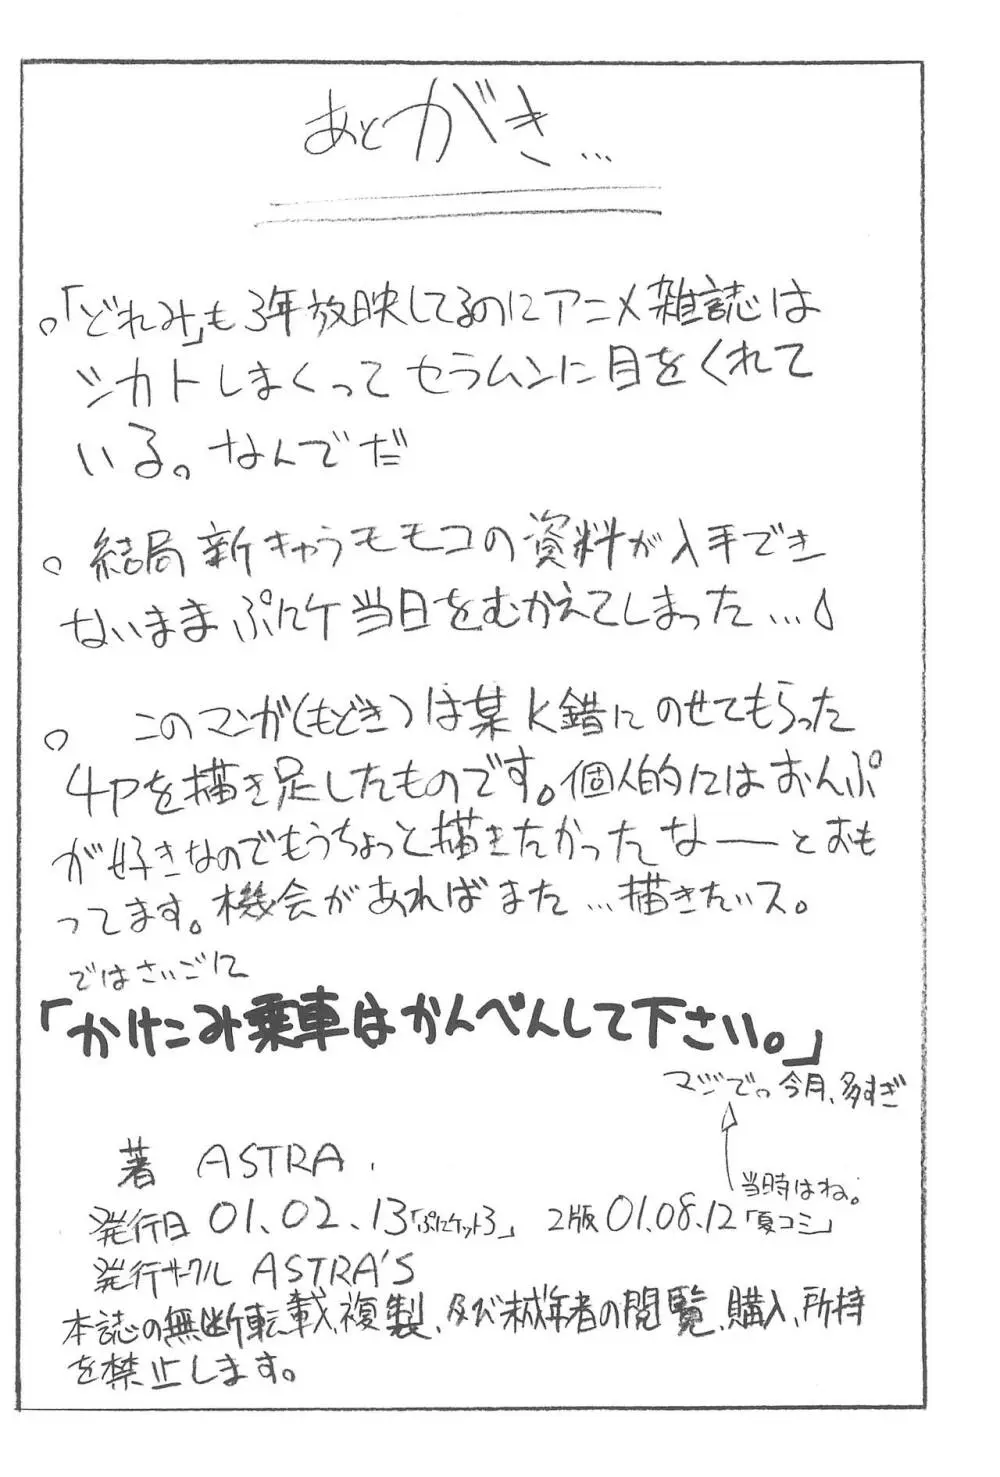 あとがき…
○「どれみ」も3年放映してるのにアニメ雑誌は
シカトしまくってセラムンに目をくれて
いる。なんでだ
○結局新キャラモモコの資料が入手でき
ないままぷにケ当日をむかえてしまった…
○このマンガ(もどき)は某K錯にのせてもらった
4Pを描き足したものです。個人的にはおんぷ
が好きなのでもうちょっと描きたかったなーとおも
ってます。機会があればまた…描きたいス。
ではさいごに
「かけこみ乗車はかんべんして下さい。」
マジでっ今月、多すぎ
当時はね。
著 ASTRA.
発行日 01.02.13「ぷにケット3」 2版 01.08.12「夏コミ」
発行サークル ASTRA'S
本誌の無断転載、複製、及び未成年者の閲覧、購入、所持
を禁止します。